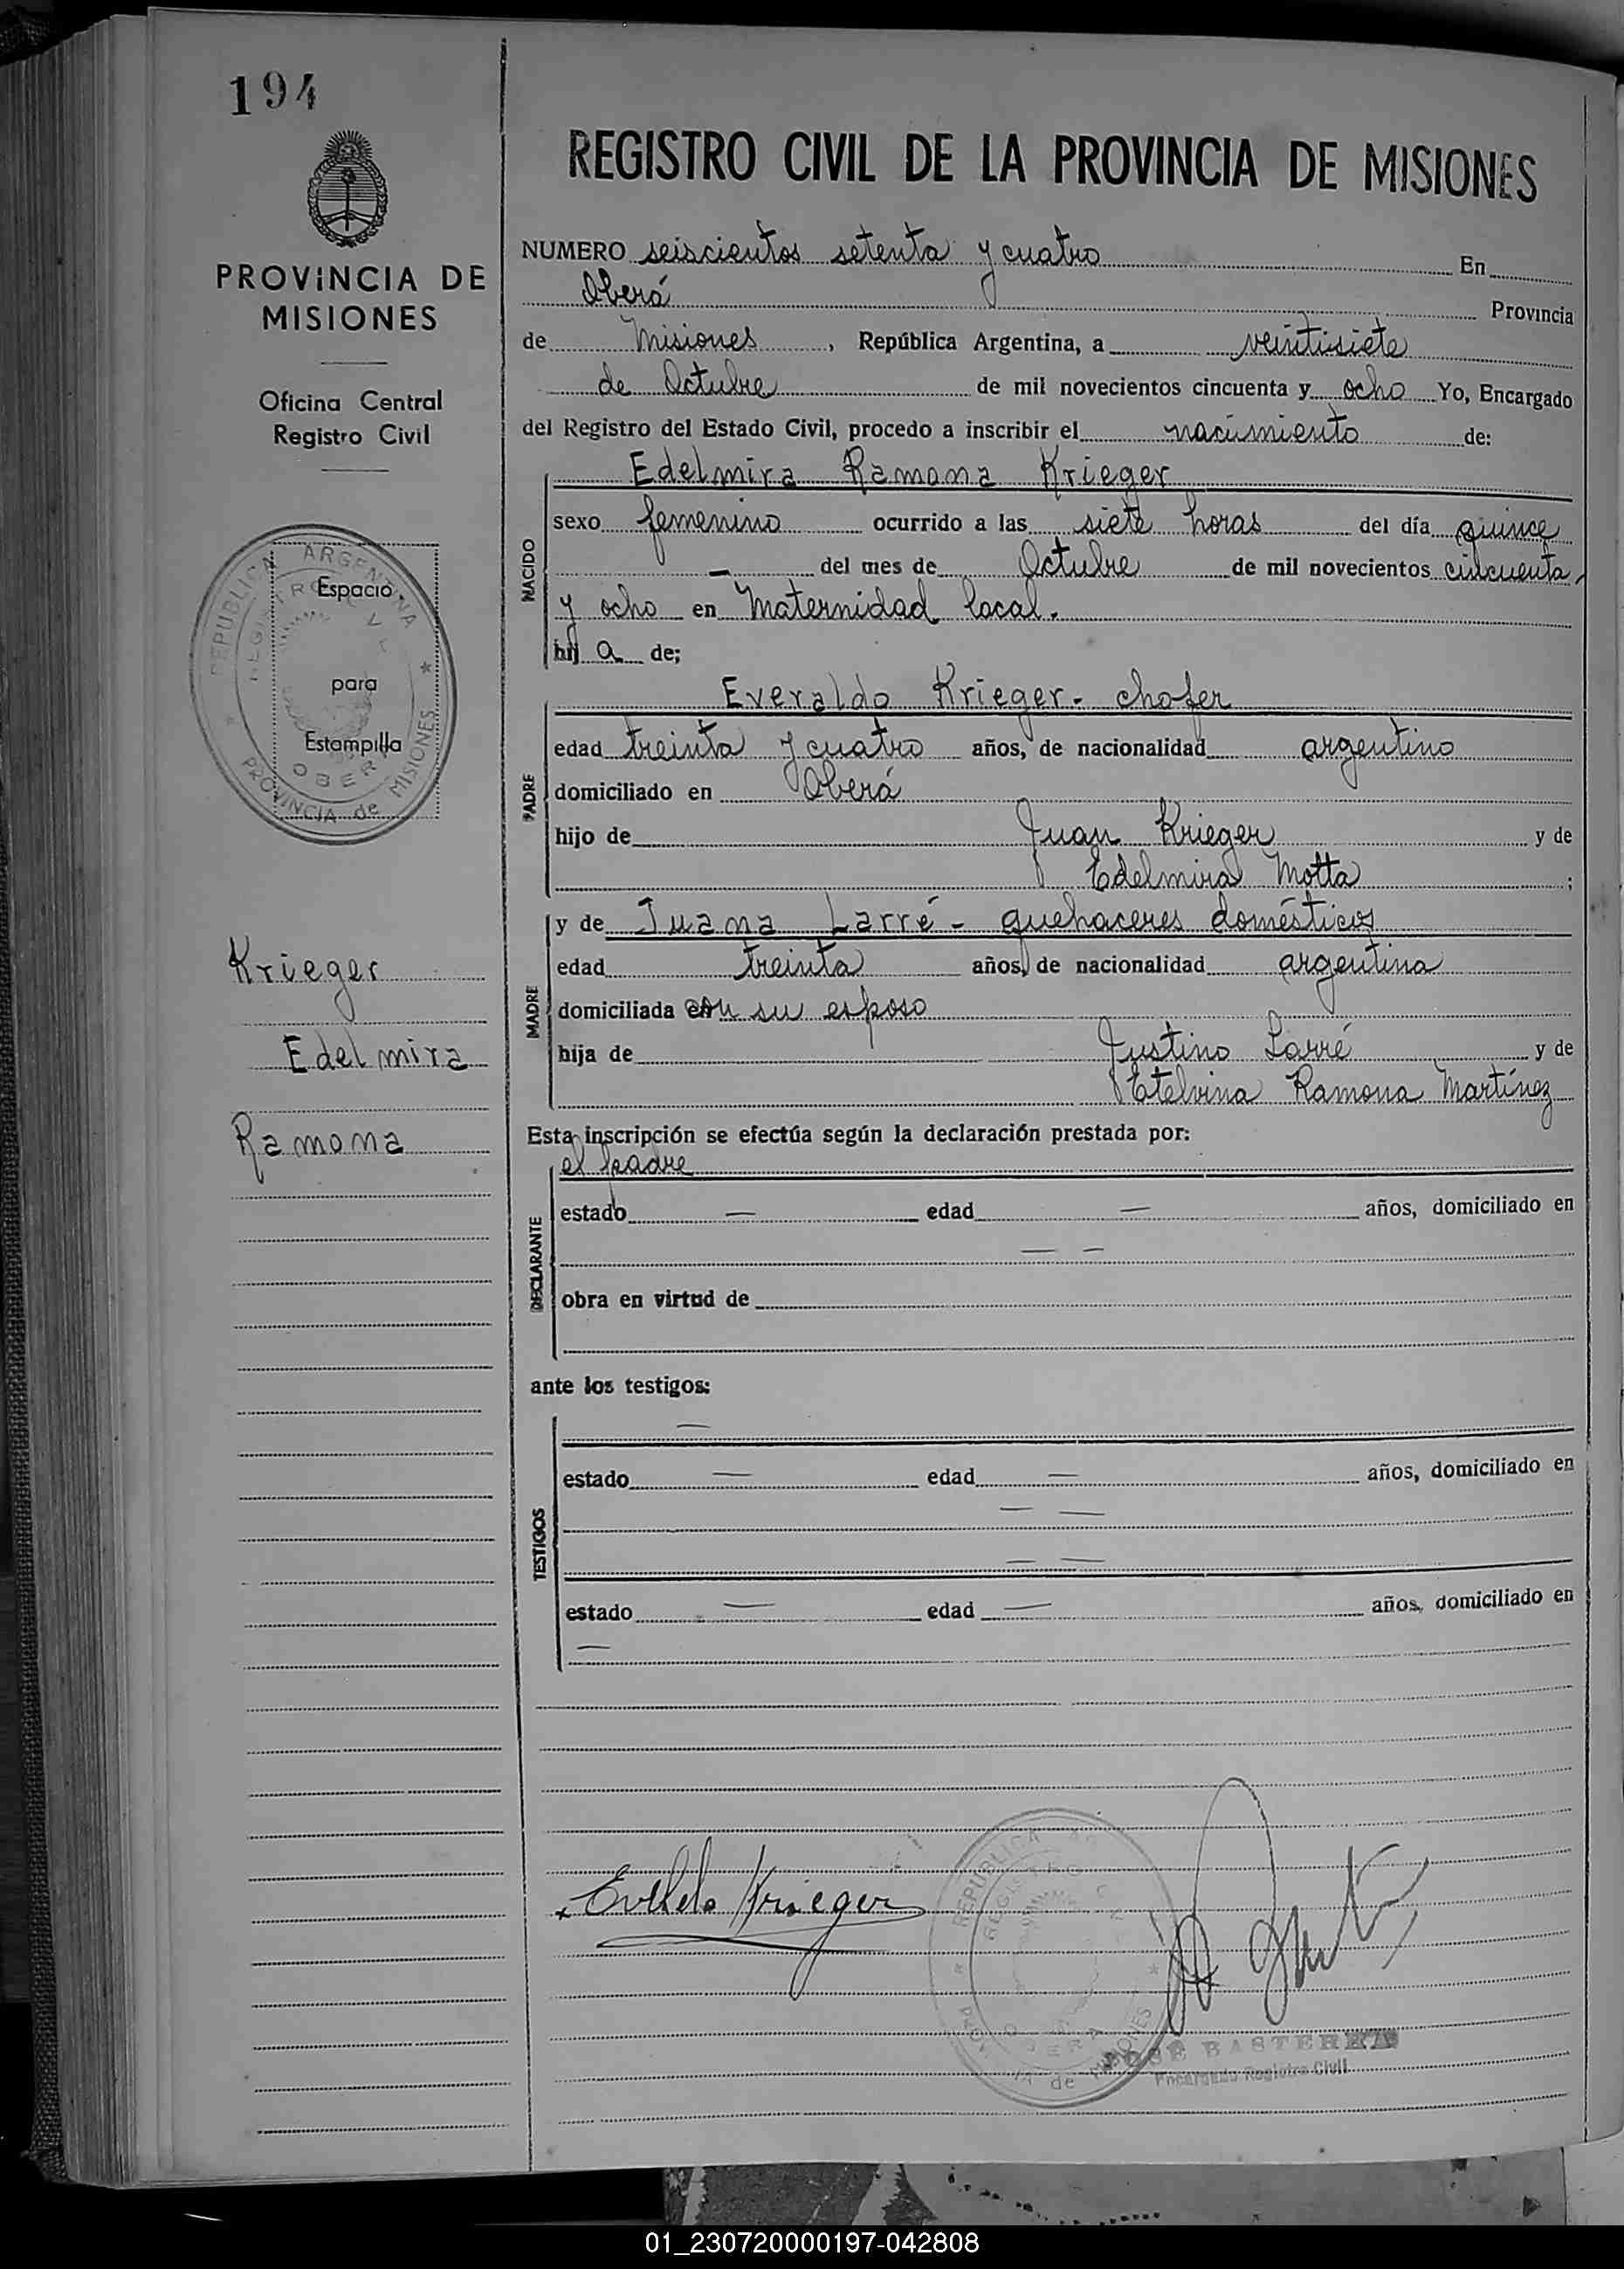 194
PROVINCIA DE
MISIONES
Oficina Central
Registro Civil
REPUBLICA ARGENTINA
REGISTRO CIVIL
OBERA
PROVINCIA de MISIONES
Espacio
para
Estampilla
Krieger
Edelmira
Ramona
REGISTRO CIVIL DE LA PROVINCIA DE MISIONES
NUMERO seiscientos setenta y cuatro En
Oberá Provincia
de Misiones, República Argentina, a veintisiete
de Octubre de mil novecientos cincuenta y ocho Yo, Encargado
del Registro del Estado Civil, procedo a inscribir el nacimiento de:
Edelmira Ramona Krieger
NACIDO
sexo femenino ocurrido a las siete horas del día quince
— del mes de Octubre de mil novecientos cincuenta
y ocho en Maternidad local.
hij a de;
Everaldo Krieger - chofer
PADRE
edad treinta y cuatro años, de nacionalidad argentino
domiciliado en Oberá
hijo de Juan Krieger y de
Edelmira Motta ;
MADRE
y de Juana Larré - quehaceres domésticos
edad treinta años, de nacionalidad argentina
domiciliada con su esposo
hija de Justino Larré y de
Etelvina Ramona Martínez
Esta inscripción se efectúa según la declaración prestada por:
el padre
DECLARANTE
estado — edad — años, domiciliado en
— —
obra en virtud de
ante los testigos:
—
TESTIGOS
estado — edad — años, domiciliado en
— —
— —
estado — edad — años, domiciliado en
—
Krieger
REPUBLICA
OBERA
de MISIONES
JOSÉ BASTERRA
Encargado Registro Civil
01_230720000197-042808